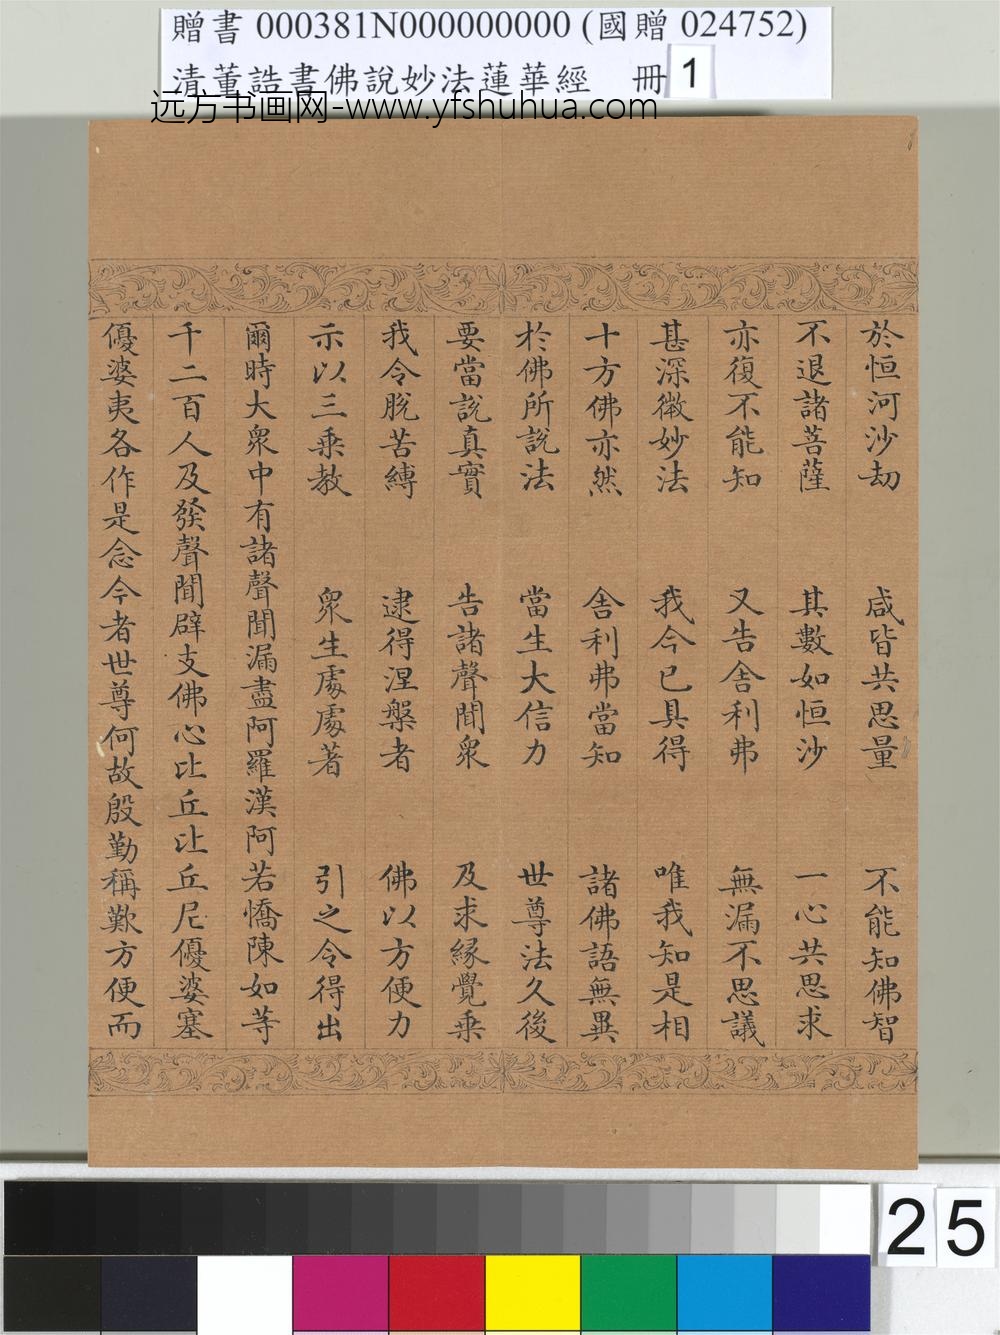 贈書 000381N000000000 (國贈 024752)
清董誥書佛說妙法蓮華經 冊 1
远方书画网-www.yfshuhua.com
於恒河沙劫 咸皆共思量 不能知佛智
不退諸菩薩 其數如恒沙 一心共思求
亦復不能知 又告舍利弗 無漏不思議
甚深微妙法 我今已具得 唯我知是相
十方佛亦然 舍利弗當知 諸佛語無異
於佛所說法 當生大信力 世尊法久後
要當說真實 告諸聲聞衆 及求緣覺乘
我令脫苦縛 逮得涅槃者 佛以方便力
示以三乘教 衆生處處著 引之令得出
爾時大衆中有諸聲聞漏盡阿羅漢阿若憍陳如等
千二百人及發聲聞辟支佛心比丘比丘尼優婆塞
優婆夷各作是念今者世尊何故殷勤稱歎方便而
25